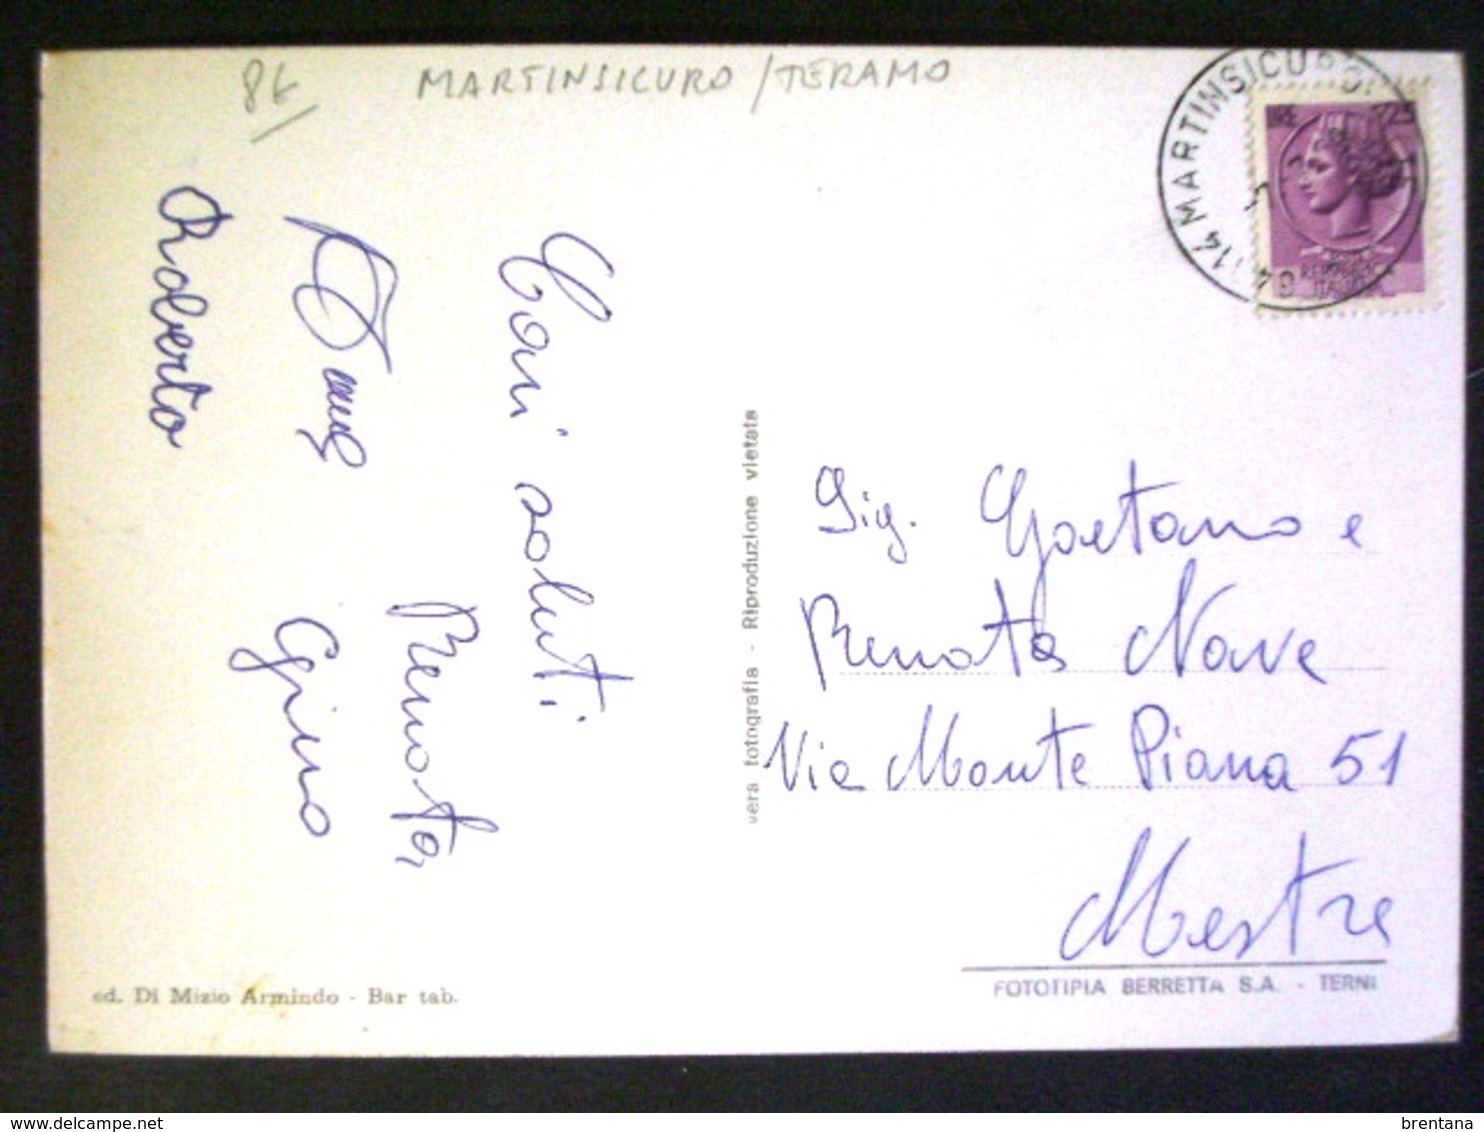 MARTINSICURO / TERAMO
MARTINSICURO
LIRE 25
REPUBBLICA
ITALIANA
Cari saluti
Renata
Gino
Roberto
vera fotografia - Riproduzione vietata
Sig. Gaetano e
Renata Nave
Via Monte Piana 51
Mestre
ed. Di Mizio Armindo - Bar tab.
FOTOTIPIA BERRETTA S.A. - TERNI
brentana